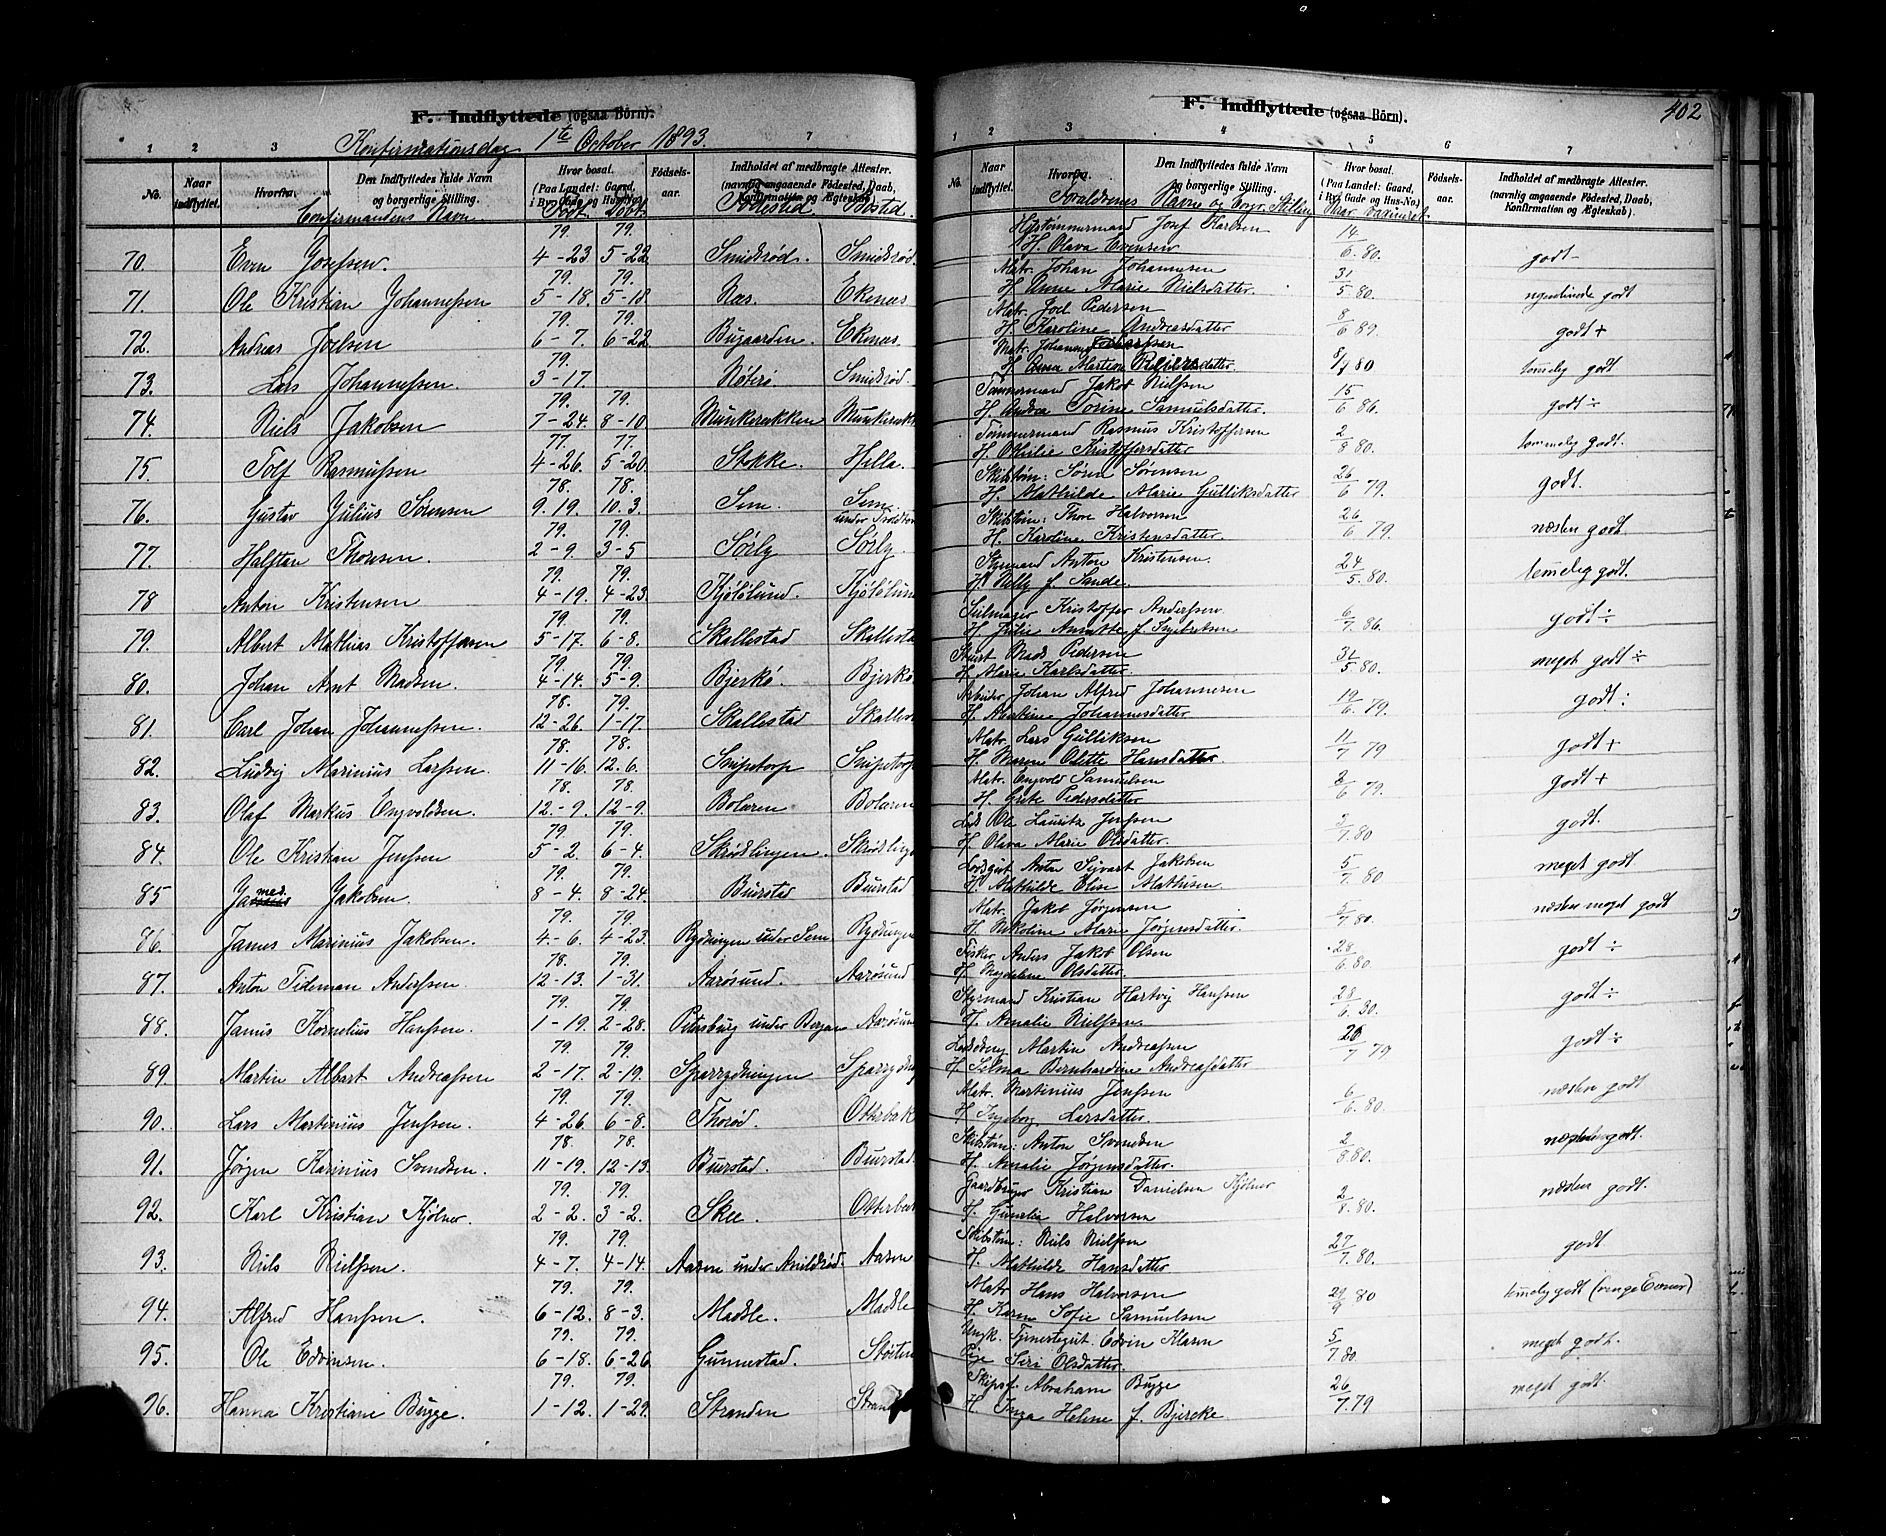 F. Indflyttede (ogsaa Börn).
Konfirmationsdag 1ste October 1893.
1 2 3 7
No.
Naar indflyttet.
Hvorfra.
Den Indflyttedes fulde Navn og borgerlige Stilling.
Hvor bosat. (Paa Landet: Gaard, i By: Gade og Hus-No.)
Fødsels-aar.
Indholdet af medbragte Attester. (navnlig angaaende Födested, Daab, Konfirmation og Ægteskab).
Confirmandens Navn Født Døbt Fødested Bosted
70. Even Josefsen. 79. 4-23 79. 5-22 Smidsrød. Smidsrød.
71. Ole Kristian Johannessen 79. 5-18. 79. 5-18. Næs. Ekenæs.
72. Andreas Joelsen 79. 6-7. 79. 6-22 Bugaarden. Ekenæs.
73. Lars Johannessen 79. 3-17. Nöterö Smidsrød
74. Niels Jakobsen 79. 7-24. 79. 8-10 Munkerekken Munkerekk
75. Tolf Rasmussen 77. 4-26. 77. 5-20. Stokke. Hella.
76. Gustav Julius Sörensen 78. 9.19. 78. 10.3. Sem. Sem under
77. Halftan Thorsen. 79. 2-9. 79. 3-5 Sörby Sörby.
78 Anton Kristensen 79. 4-19. 79. 4-23. Kjölölund. Kjölölund
79. Albert Mathias Kristoffersen 79. 5-17. 79. 6-8. Skallestad Skallesta
80. Johan Arnt Madsen. 79. 4-14. 79. 5-9. Bjerkö. Bjerkö
81. Carl Johan Johannessen. 78. 12-26. 79. 1-17. Skallestad Skallest
82. Ludvig Marinius Larssen. 78. 11-16. 78. 12.6. Snipetorp Snipetorp
83. Olaf Markus Engvoldsen. 78. 12-9. 78. 12-9. Bolæren Bolæren
84. Ole Kristian Jenssen 79. 5-2. 79. 6-4. Skrödlingen. Skrödlinge
85 James Jakobsen. 79. 8-4. 79. 8-24. Buerstad Buerstad
86. James Marinius Jakobsen. 79. 4-6. 79. 4-23. Rydningen under Sem Rydningen
87. Anton Tideman Anderssen. 78. 12-13. 79. 1-31. Aarösund. Aarösund
88. Janus Kornelius Hanssen. 79. 1-19. 79. 2-28. Petersburg under Bergan Aarösun
89. Martin Albert Andreassen 79. 2-17. 79. 2-19. Sparrydningen Sparrydning
90. Lars Martinius Jenssen. 79. 4-26. 79. 6-8. Thoröd. Otterbæk
91. Jörgen Karinius Svendsen. 78. 11-19. 78. 12-13. Buerstad. Buerstad.
92. Karl Kristian Kjölner. 79. 2-2. 79. 3-2. Skee. Otterbæk
93. Niels Nielssen. 79. 4-7. 79. 4-14. Aasen under Arildsröd. Aasen
94. Alfred Hanssen. 79. 6-12. 79. 8-3. Madsle. Madsle
95. Ole Edvinsen. 79. 6-18. 79. 6-26. Gunnestad. Støiten
96. Hanna Kristiane Bugge. 79. 1-12. 79. 1-29. Stranden Strand
F. Indflyttede (ogsaa Börn).
402
1 2 3 4 5 6 7
No.
Naar indflyttet.
Hvorfra
Den Indflyttedes fulde Navn og borgerlige Stilling.
Hvor bosat. (Paa Landet: Gaard, i By: Gade og Hus-No.)
Fødsels-aar.
Indholdet af medbragte Attester. (navnlig angaaende Födested, Daab, Konfirmation og Ægteskab).
Forældrenes Navne og borg. Stilling Naar vaccineret
Hustømmermand Josef Karlsen
H. Olava Evensen 14/6. 80. godt
Matr. Johan Johannesen
H. Anne Marie Nielsdatter. 31/5 80. godt
Matr. Joel Pedersen
H. Karoline Andreasdatter 8/6 89. godt +
Matr. Johannes
H. Anna Martine Reiersdatter. 8/9 80 temelig godt
Tömmermand Jakob Nielssen
H. Andrea Torine Samuelsdatter. 15/6 86. godt ÷
Tømmermand Rasmus Kristoffersen
H. Othilie Kristoffersdatter. 2/8 80. temelig godt.
Skibstøm: Sören Sörensen
H. Mathilde Marie Gulliksdatter 26/6 79. godt.
Skibstøm: Thore Halvorsen
H. Karoline Kristensdatter. 26/6 79. næsten godt.
Styrmand Anton Kristensen
H. Nelly f. Sande 24/5. 80. temelig godt.
Seilmager Kristoffer Anderssen
H. Julie Annette f. Ingebretsen 6/7. 86. godt ÷
Stuert Mads Pedersen
H. Marie Karlsdatter. 31/5 80. meget godt ÷
Arbeider Johan Alfred Johannesen
H. Martine Johannesdatter 19/6. 79. godt :
Matr. Lars Gulliksen
H. Maren Olette Hansdatter. 11/7 79 godt +
Matr. Engvold Samuelsen
H. Grete Pedersdatter 8/6 79. godt +
Lods Ole Lauritz Jenssen
H. Olava Marie Olsdatter. 2/7. 80 godt.
Lodsgut Anton Sigvart Jakobsen
H. Mathilde Elise Mathisen 5/7. 80 meget godt
Matr. Jakob Jörgensen
H. Nikoline Marie Jörgensdatter. 5/7 80. næsten meget godt
Fisker Anders Jakob Olsen
H. Magdalene Olsdatter. 28/6. 80. godt ÷
Styrmand Kristian Hartvig Hanssen
H. Amalie Nielssen. 28/6. 80. godt ÷
Lodsdreng Martin Andreassen
H. Selma Bernhardine Andreasdatter 26/7 79 godt ÷
Matr. Martinius Jenssen
H. Ingeborg Larsdatter. 6/6. 80. næsten godt
Skibstøm: Anton Svendsen
H. Amalie Jörgensdatter. 2/8 80. næsten godt.
Gaardbruger Kristian Danielsen Kjölner
H. Gunelia Halvorsen 2/8. 80. næsten godt.
Skibstøm: Niels Nielssen
H. Mathilde Hansdatter 27/7. 80. godt
Matr. Hans Halvorsen
H. Karen Sofie Samuelsen 29/9 80 temelig godt (ringe Evner)
Ungk. Tjenestegut Edvin Klasen
Pige Siri Olsdatter. 5/7 80. meget godt.
Skipsf. Abraham Bugge
H. Inga Helene f. Bjercke 26/7. 79 meget godt.